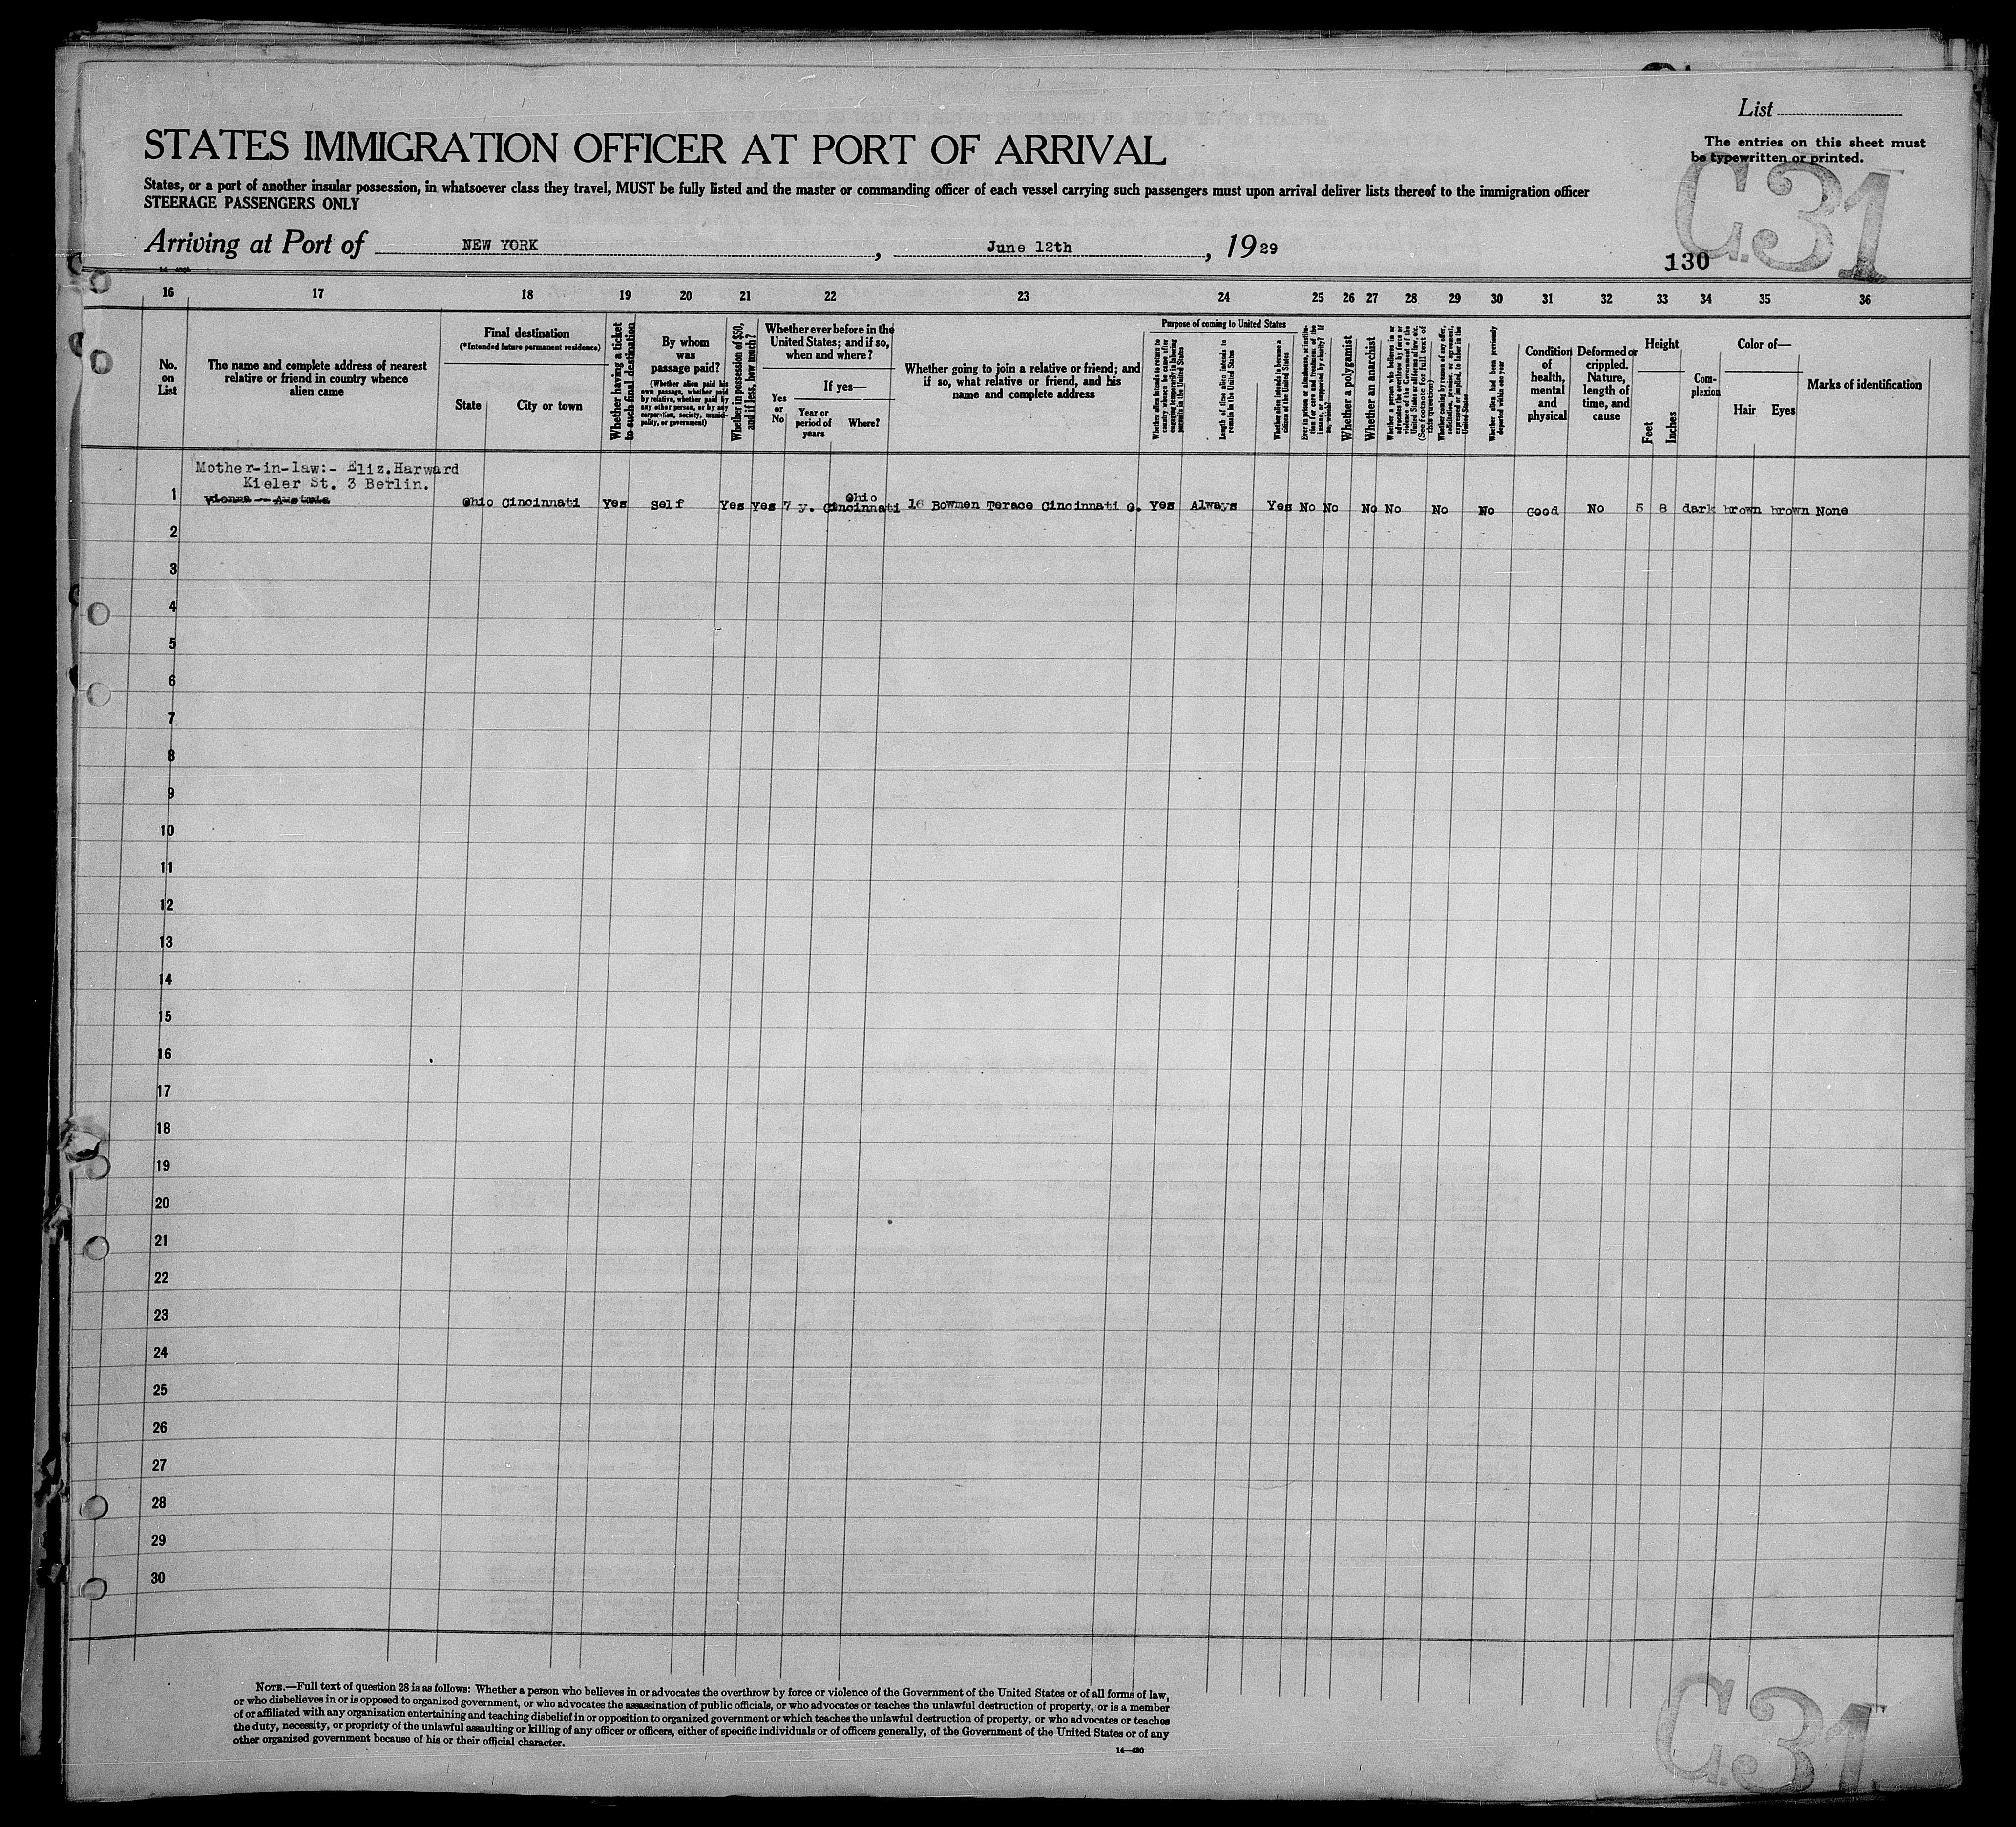 List
STATES IMMIGRATION OFFICER AT PORT OF ARRIVAL
The entries on this sheet must
be typewritten or printed.
C.31
States, or a port of another insular possession, in whatsoever class they travel, MUST be fully listed and the master or commanding officer of each vessel carrying such passengers must upon arrival deliver lists thereof to the immigration officer
STEERAGE PASSENGERS ONLY
Arriving at Port of NEW YORK, June 12th, 1929
130
16 17 18 19 20 21 22 23 24 25 26 27 28 29 30 31 32 33 34 35 36
No.
on
List
The name and complete address of nearest
relative or friend in country whence
alien came
Final destination
(*Intended future permanent residence)
State
City or town
Whether having a ticket
to such final destination
By whom
was
passage paid?
(Whether alien paid his
own passage, whether paid
by relative, whether paid by
any other person, or by any
corporation, society, munici-
pality, or government)
Whether in possession of $50,
and if less, how much?
Whether ever before in the
United States; and if so,
when and where?
Yes
or
No
If yes—
Year or
period of
years
Where?
Whether going to join a relative or friend; and
if so, what relative or friend, and his
name and complete address
Purpose of coming to United States
Whether alien intends to return to
country whence he came after
engaging temporarily in laboring
pursuits in the United States
Length of time alien intends to
remain in the United States
Whether alien intends to become a
citizen of the United States
Ever in prison or almshouse, or institu-
tion for care and treatment of the
insane, or supported by charity? If
so, which?
Whether a polygamist
Whether an anarchist
Whether a person who believes in or
advocates the overthrow by force or
violence of the Government of the
United States or all forms of law, etc.
(See footnote for full text of
this question)
Whether coming by reason of any offer,
solicitation, promise, or agreement,
expressed or implied, to labor in the
United States
Whether alien had been previously
deported within one year
Condition
of
health,
mental
and
physical
Deformed or
crippled.
Nature,
length of
time, and
cause
Height
Feet
Inches
Com-
plexion
Color of—
Hair
Eyes
Marks of identification
Mother-in-law:- Eliz.Harward
Kieler St. 3 Berlin.
Vienna -- Austria
1 Ohio Cincinnati Yes Self Yes Yes 7 y. Ohio Cincinnati 16 Bowmen Terace Cincinnati O. Yes Always Yes No No No No No No Good No 5 8 dark brown brown None
2
3
4
5
6
7
8
9
10
11
12
13
14
15
16
17
18
19
20
21
22
23
24
25
26
27
28
29
30
NOTE.—Full text of question 28 is as follows: Whether a person who believes in or advocates the overthrow by force or violence of the Government of the United States or of all forms of law,
or who disbelieves in or is opposed to organized government, or who advocates the assassination of public officials, or who advocates or teaches the unlawful destruction of property, or is a member
of or affiliated with any organization entertaining and teaching disbelief in or opposition to organized government or which teaches the unlawful destruction of property, or who advocates or teaches
the duty, necessity, or propriety of the unlawful assaulting or killing of any officer or officers, either of specific individuals or of officers generally, of the Government of the United States or of any
other organized government because of his or their official character.
14—430
C.31